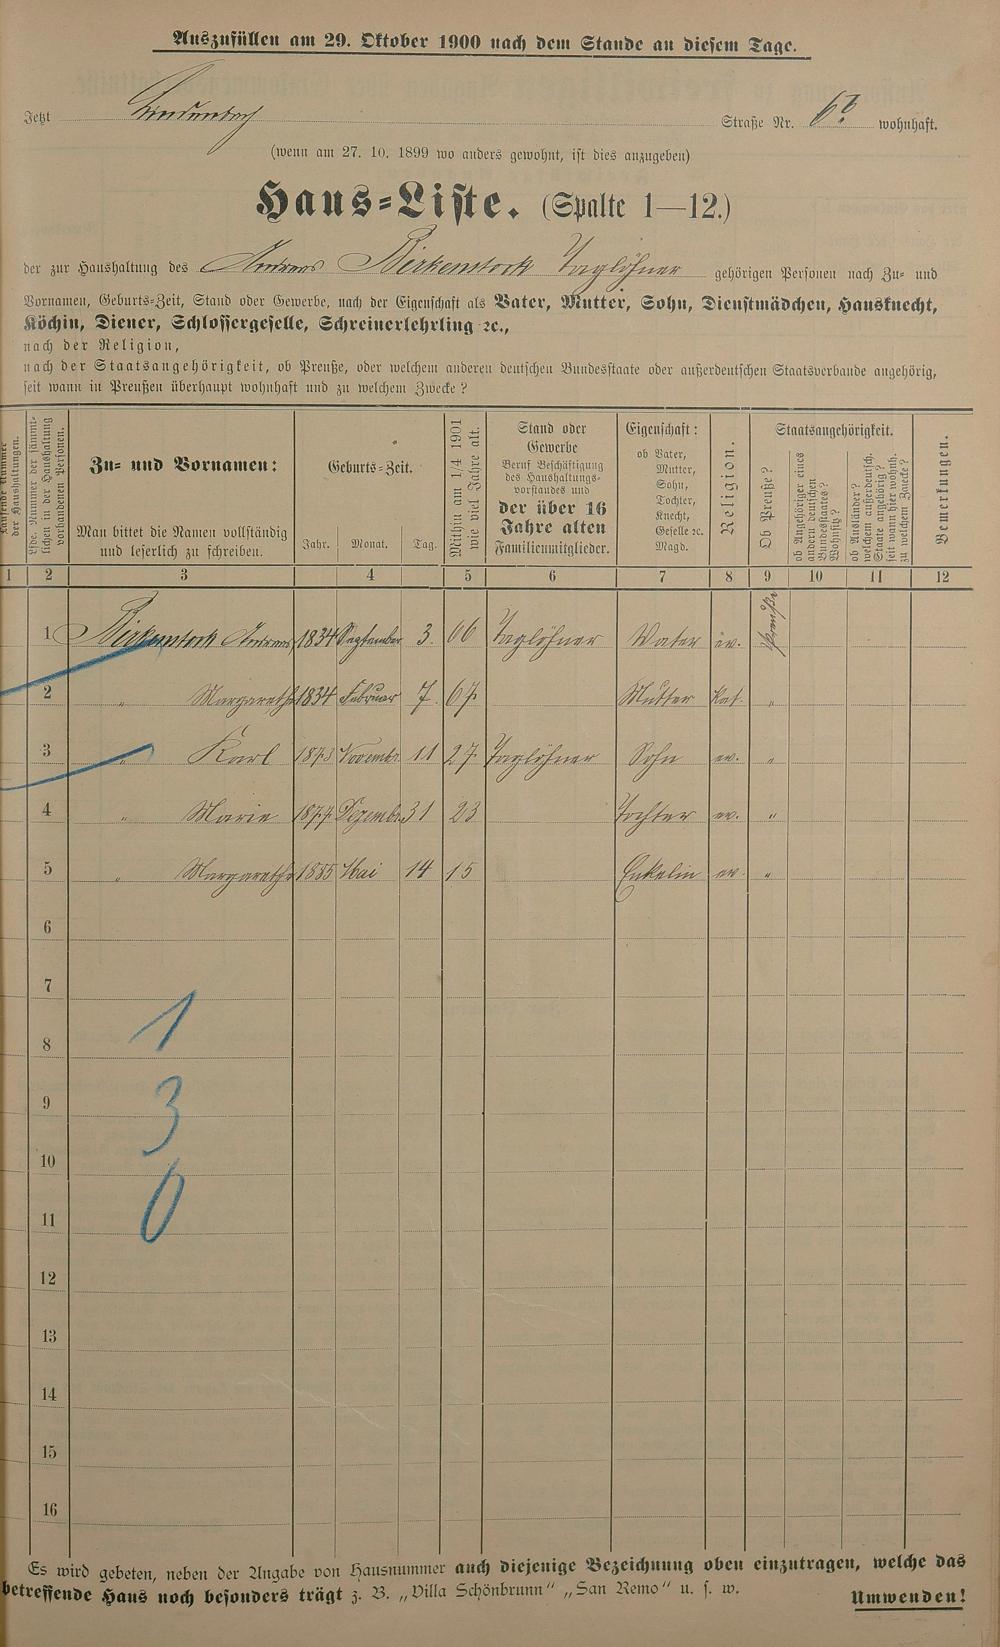 Auszufüllen am 29. Oktober 1900 nach dem Stande an diesem Tage.
Jetzt Lindenbach Straße Nr. 6 wohnhaft.
(wenn am 27. 10. 1899 wo anders gewohnt, ist dies anzugeben)
Haus-Liste. (Spalte 1—12.)
der zur Haushaltung des Andreas Birkenstock Taglöhner gehörigen Personen nach Zu- und
Vornamen, Geburts-Zeit, Stand oder Gewerbe, nach der Eigenschaft als Vater, Mutter, Sohn, Dienstmädchen, Hausknecht,
Köchin, Diener, Schlossergeselle, Schreinerlehrling ꝛc.,
nach der Religion,
nach der Staatsangehörigkeit, ob Preuße, oder welchem anderen deutschen Bundesstaate oder außerdeutschen Staatsverbande angehörig,
seit wann in Preußen überhaupt wohnhaft und zu welchem Zwecke?
Laufende Nummer der Haushaltungen.
Lfde. Nummer der sämmtlichen in der Haushaltung vorhandenen Personen.
Zu- und Vornamen:
Man bittet die Namen vollständig
und leserlich zu schreiben.
Geburts-Zeit.
Jahr. Monat. Tag.
Mithin am 1/4 1901
wie viel Jahre alt.
Stand oder
Gewerbe
Beruf Beschäftigung
des Haushaltungs-
vorstandes und
der über 16
Jahre alten
Familienmitglieder.
Eigenschaft:
ob Vater,
Mutter,
Sohn,
Tochter,
Knecht,
Geselle ꝛc.
Magd.
Religion.
Staatsangehörigkeit.
Ob Preuße?
ob Angehöriger eines
andern deutschen
Bundesstaates?
Wohnsitz?
ob Ausländer?
welchem außerdeutsch.
Staate angehörig?
seit wann hier wohnh.
zu welchem Zwecke?
Bemerkungen.
1 2 3 4 5 6 7 8 9 10 11 12
1 Birkenstock Andreas 1834 September 3. 66 Taglöhner Vater ev. Preuße
2 " Margarethe 1834 Februar 7. 67 Mutter Kat. "
3 " Karl 1873 Novembr. 11 27 Taglöhner Sohn ev. "
4 " Marie 1877 Dezembr. 31 23 Tochter ev. "
5 " Margarethe 1885 Mai 14 15 Enkelin ev. "
6
7
1
8
9
3
10
0
11
12
13
14
15
16
Es wird gebeten, neben der Angabe von Hausnummer auch diejenige Bezeichnung oben einzutragen, welche das
betreffende Haus noch besonders trägt z. B. „Villa Schönbrunn“ „San Remo“ u. s. w. Umwenden!